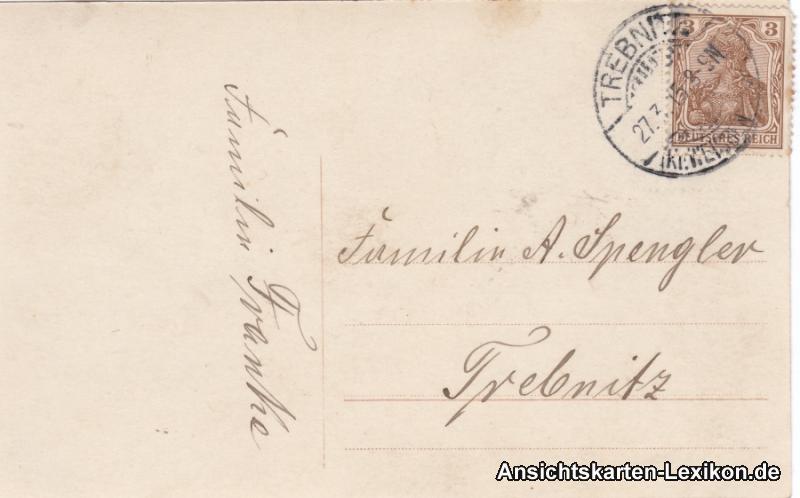 Familie Franke
3
DEUTSCHES REICH
TREBNITZ
27.3. 8-9N.
Familie A. Spengler
Trebnitz
Ansichtskarten-Lexikon.de